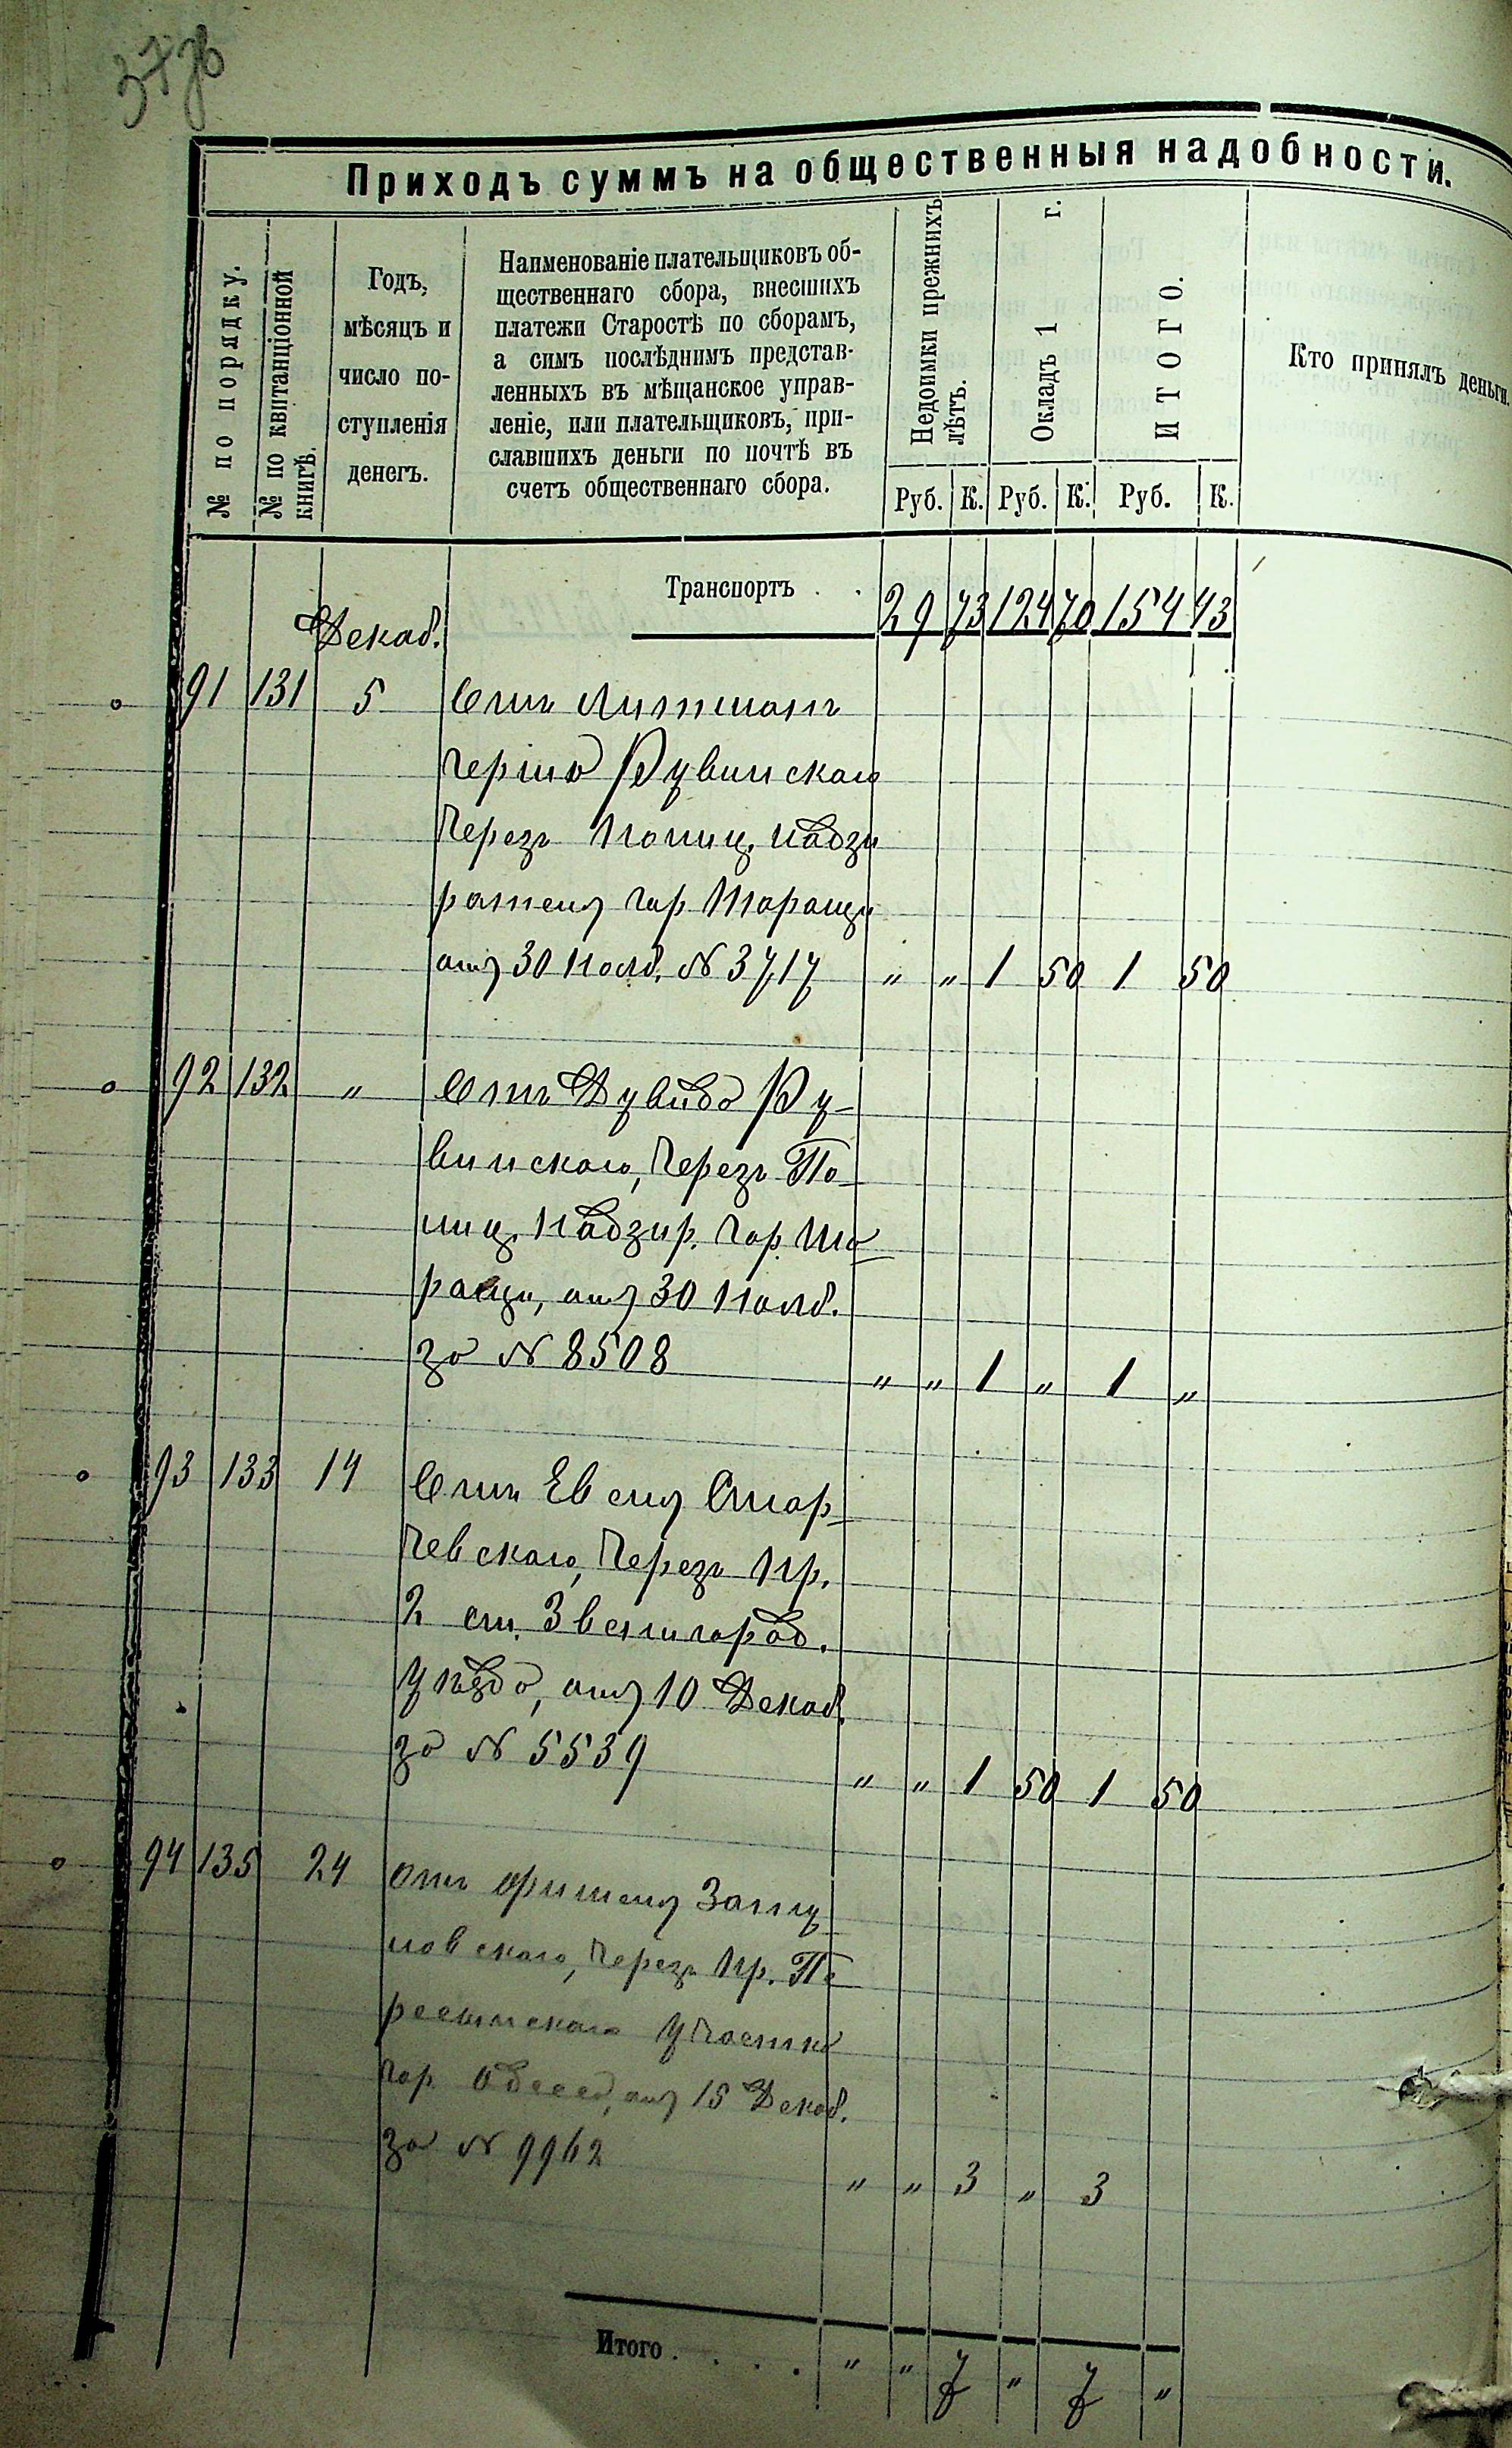 Приходъ суммъ на общественныя надобности.
№ по порядку.
№ по квитанціонной
книгѣ.
Годъ,
мѣсяцъ и
число по-
ступленія
денегъ.
Наименованіе плательщиковъ об-
щественнаго сбора, внесшихъ
платежи Старостѣ по сборамъ,
а симъ послѣднимъ представ-
ленныхъ въ мѣщанское управ-
леніе, или плательщиковъ, при-
славшихъ деньги по почтѣ въ
счетъ общественнаго сбора.
Недоимки прежнихъ
лѣтъ.
Окладъ 1 г.
ИТОГО.
Кто принялъ деньги.
Руб. К. Руб. К. Руб. К.
Транспортъ . . 29 73 124 70 154 43
Декаб.
91 131 5 Отъ
Рувинскаго
Через Полиц. Надзи
рателя гор Таращи
отъ 30 Нояб. № 3717 " " 1 50 1 50
92 132 " Отъ Дувида Ру-
винскаго, Через По-
лиц. Надзир. гор. Та
ращи, отъ 30 Нояб.
за № 8508 " " 1 " 1 "
93 133 14 Отъ Евселя Стар
чевскаго, Через Пр.
2 ст. Звенигород.
уѣзда, отъ 10 Декаб.
за № 5539 " " 1 50 1 50
94 135 24 отъ
новскаго, Через Пр. Пе
ресыпскаго участка
гор. Одесса, отъ 15 Декаб.
за № 9962 " " 3 " 3
Итого . . . . " " 7 " 7 "